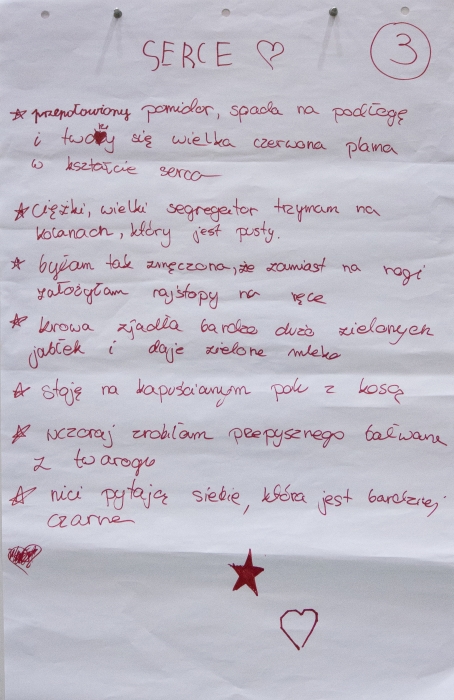 SERCE ♡
3
☆ przepołowiony pomidor, spada na podłogę
i tworzy się wielka czerwona plama
w kształcie serca
☆ ciężki, wielki segregator trzymam na
kolanach, który jest pusty.
☆ byłam tak zmęczona, że zamiast na nogi
założyłam rajstopy na ręce
☆ krowa zjadła bardzo dużo zielonych
jabłek i daje zielone mleko
☆ stoję na kapuścianym polu z kosą
☆ wczoraj zrobiłam przepysznego bałwana
z twarogu
☆ nici pytają siebie, która jest bardziej
czarna